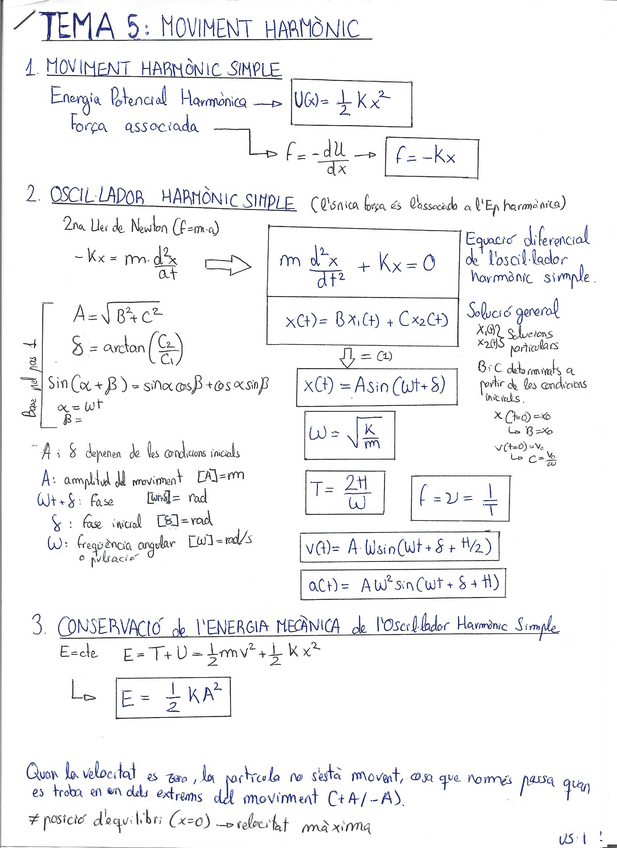 TEMA 5: MOVIMENT HARMÒNIC
1. MOVIMENT HARMÒNIC SIMPLE
Energia Potencial Harmònica → U(x) = 1/2 Kx²
Força associada
f = -dU/dx → f = -Kx
2. OSCIL·LADOR HARMÒNIC SIMPLE (l'única força és l'associada a l'Ep harmònica)
2na Llei de Newton (f=m·a)
-Kx = m · d²x/dt ⇒ m d²x/dt² + Kx = 0
Equació diferencial
de l'oscil·lador
harmònic simple.
x(t) = Bx₁(t) + Cx₂(t)
Solució general
x₁(t) i Solucions
x₂(t) particulars
B i C determinats a
partir de les condicions
inicials.
x(t=0) = x₀
↳ B = x₀
v(t=0) = v₀
↳ C = v₀/ω
A = √B² + C²
δ = arctan(C₂/C₁)
sin(α + β) = sinα cosβ + cosα sinβ
α = ωt
β =
Base pel pas 1
⇓ = (1)
x(t) = A sin(ωt + δ)
ω = √K/m
T = 2π/ω
f = ν = 1/T
v(t) = A·ω sin(ωt + δ + π/2)
a(t) = Aω² sin(ωt + δ + π)
~ A i δ depenen de les condicions inicials
A: amplitud del moviment [A] = m
ωt + δ: fase [ωt+δ] = rad
δ: fase inicial [δ] = rad
ω: freqüència angular [ω] = rad/s
o pulsació
3. CONSERVACIÓ de l'ENERGIA MECÀNICA de l'Oscil·lador Harmònic Simple
E=cte E = T + U = 1/2 mv² + 1/2 Kx²
↳ E = 1/2 KA²
Quan la velocitat es zero, la partícula no s'està movent, cosa que només passa quan
es troba en un dels extrems del moviment (+A/-A).
≠ posició d'equilibri (x=0) → velocitat màxima